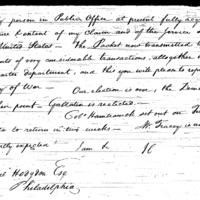 y person in Public Office at present fully acq
ture & extent of my Claim and of the Service
United States — The Packet now transmitted
ents of very considerable transactions, altogether
ster department, and this you will please to rep
y of War — Our election is over, the
her point – Gallatin is reelected.
Colo. Hamtramck set out on
to to return in two weeks — Mr. Tracey is
ntly expected I am &c I C
el Hodgdon Esq
Philadelphia